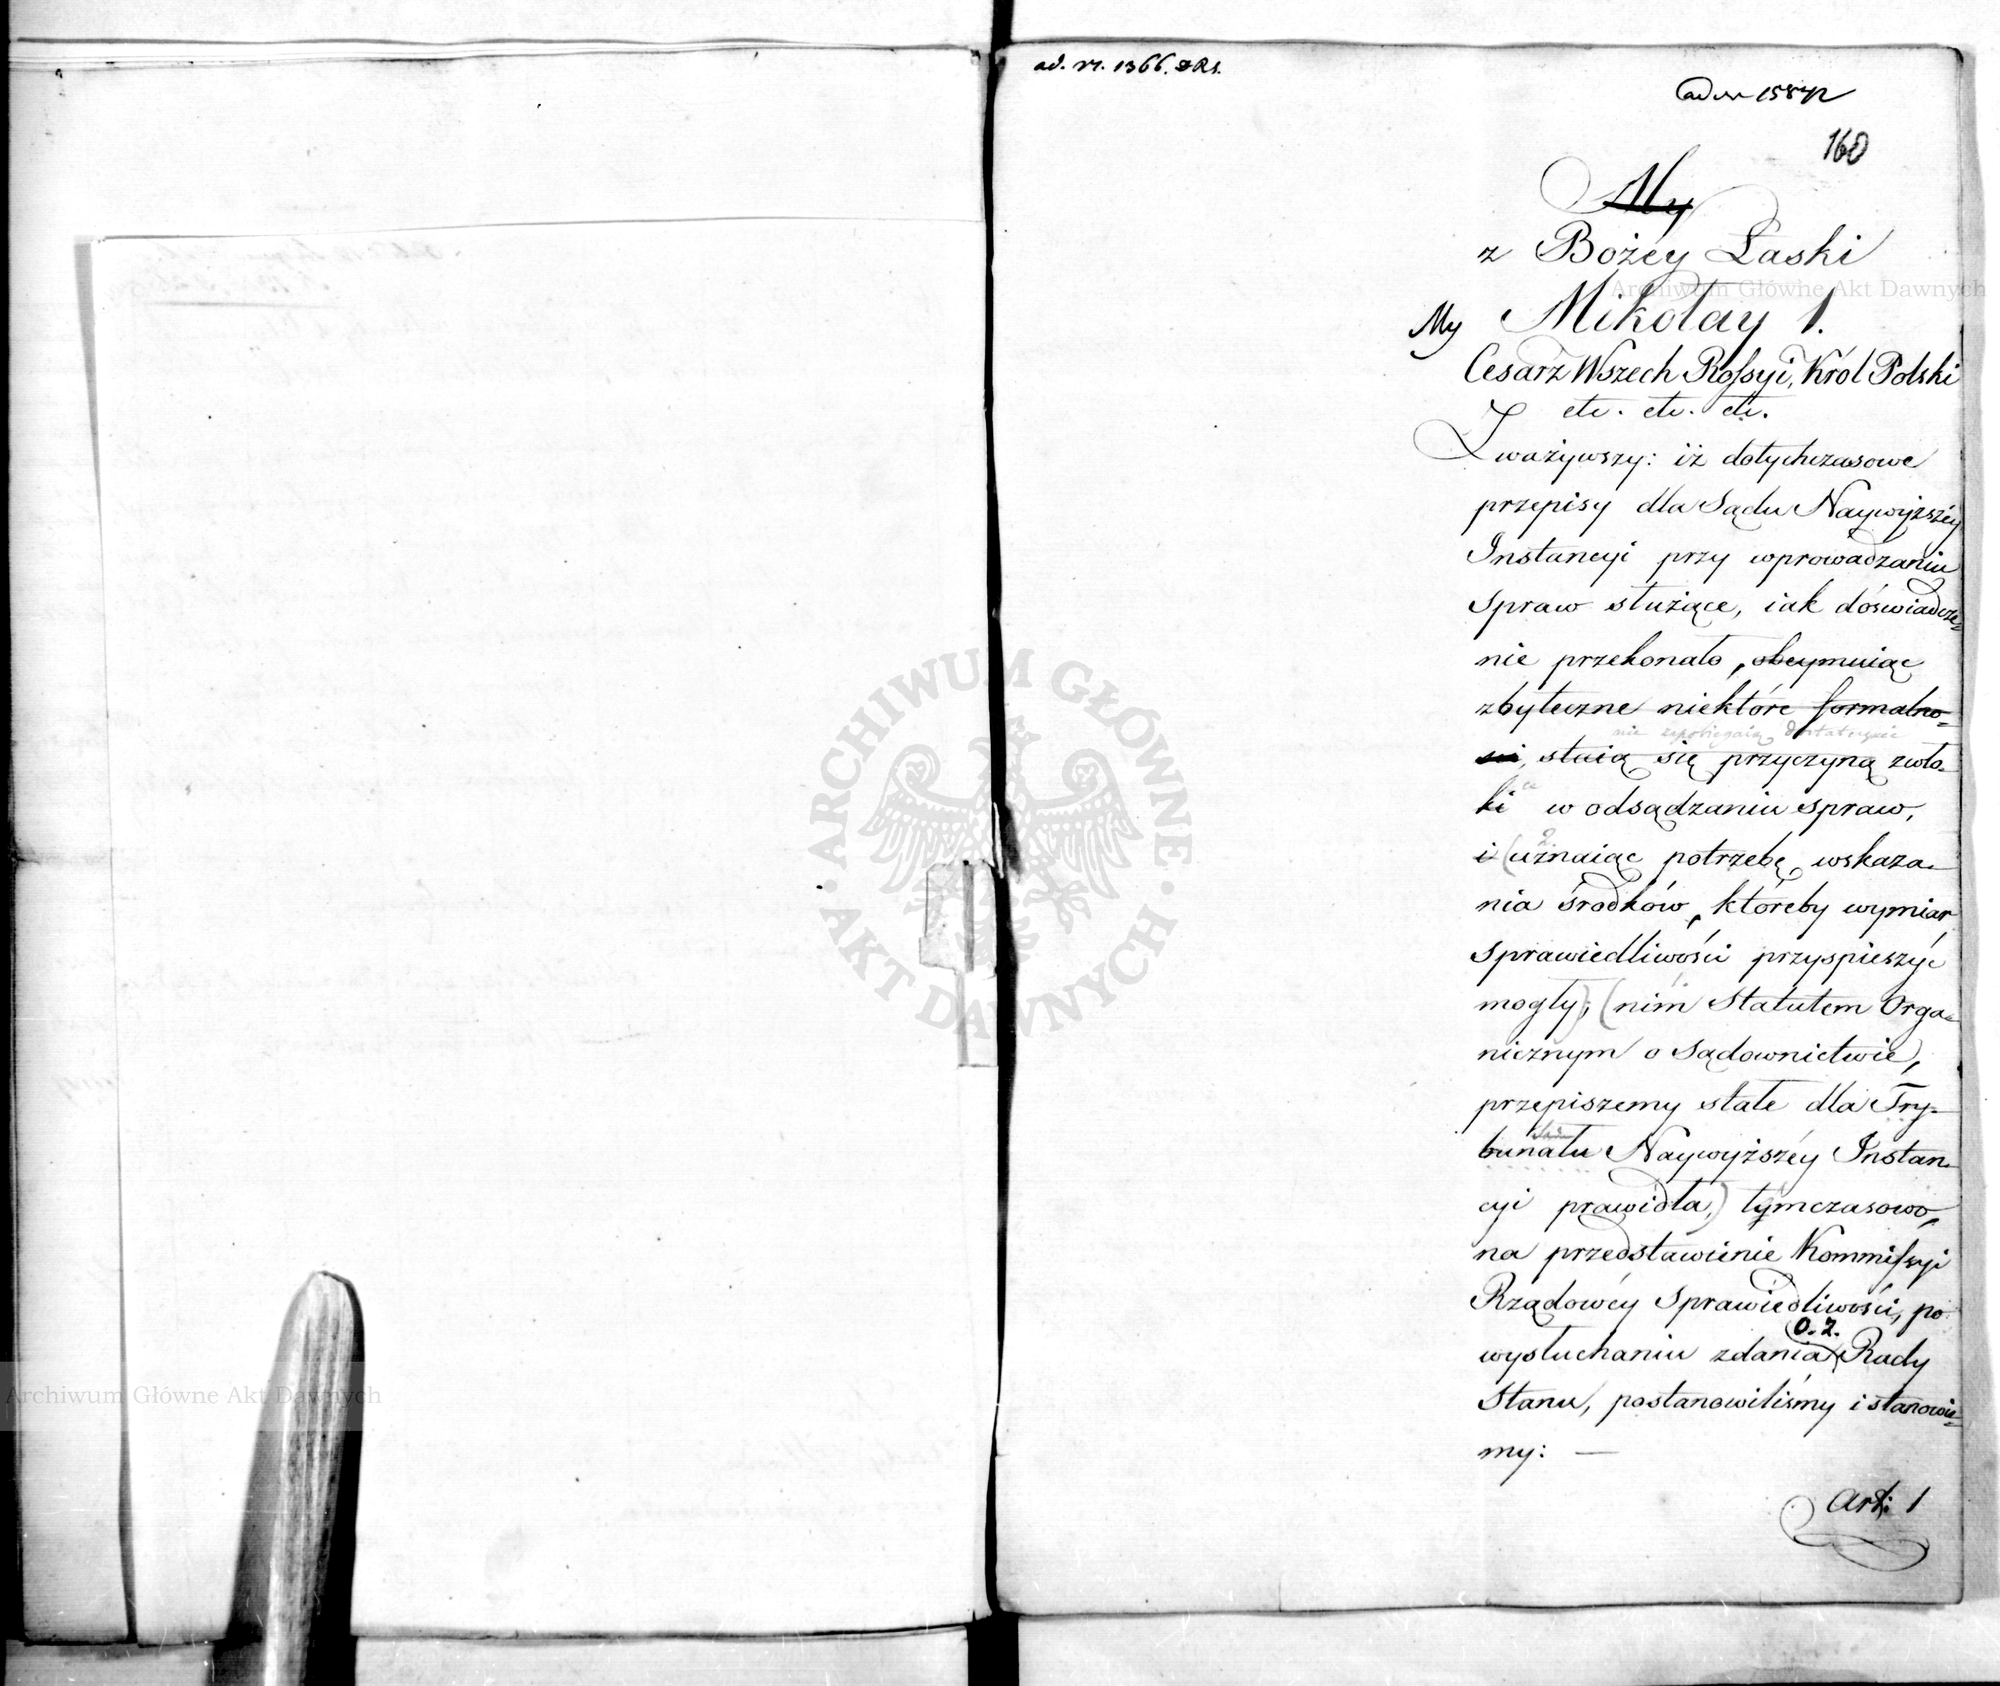 ad. nr. 1366.
160
My
z Bożey Łaski
My Mikołay 1.
Cesarz Wszech Rossyi, Król Polski
etc. etc. etc.
Zważywszy: iż dotychczasowe
przepisy dla Sądu Naywyższéy
Instancyi przy wprowadzaniu
Spraw służące, iak dóswiadcze-
nie przekonało, obeymuiąc
zbyteczne niektóre formalno-
ści, nie zapobiegaią dostatecznie
staią się przyczyną zwło-
ki w odsądzaniu spraw,
i uznaiąc potrzebę wskaza-
nia środków, któreby wymiar
Sprawiedliwości przyspieszyć
mogły; (nim Statutem Orga-
nicznym o Sądownictwie,
przepiszemy stałe dla Try-
bunału Sądu Naywyższéy Instan-
cyi prawidła,) tymczasowo,
na przedstawienie Kommissyi
Rządowéy Sprawiedliwości, po
wysłuchaniu zdania O. Z. Rady
Stanu, postanowiliśmy i stanowie-
my: —
Art: 1
ARCHIWUM GŁÓWNE · AKT DAWNYCH ·
Archiwum Główne Akt Dawnych
Archiwum Główne Akt Dawnych